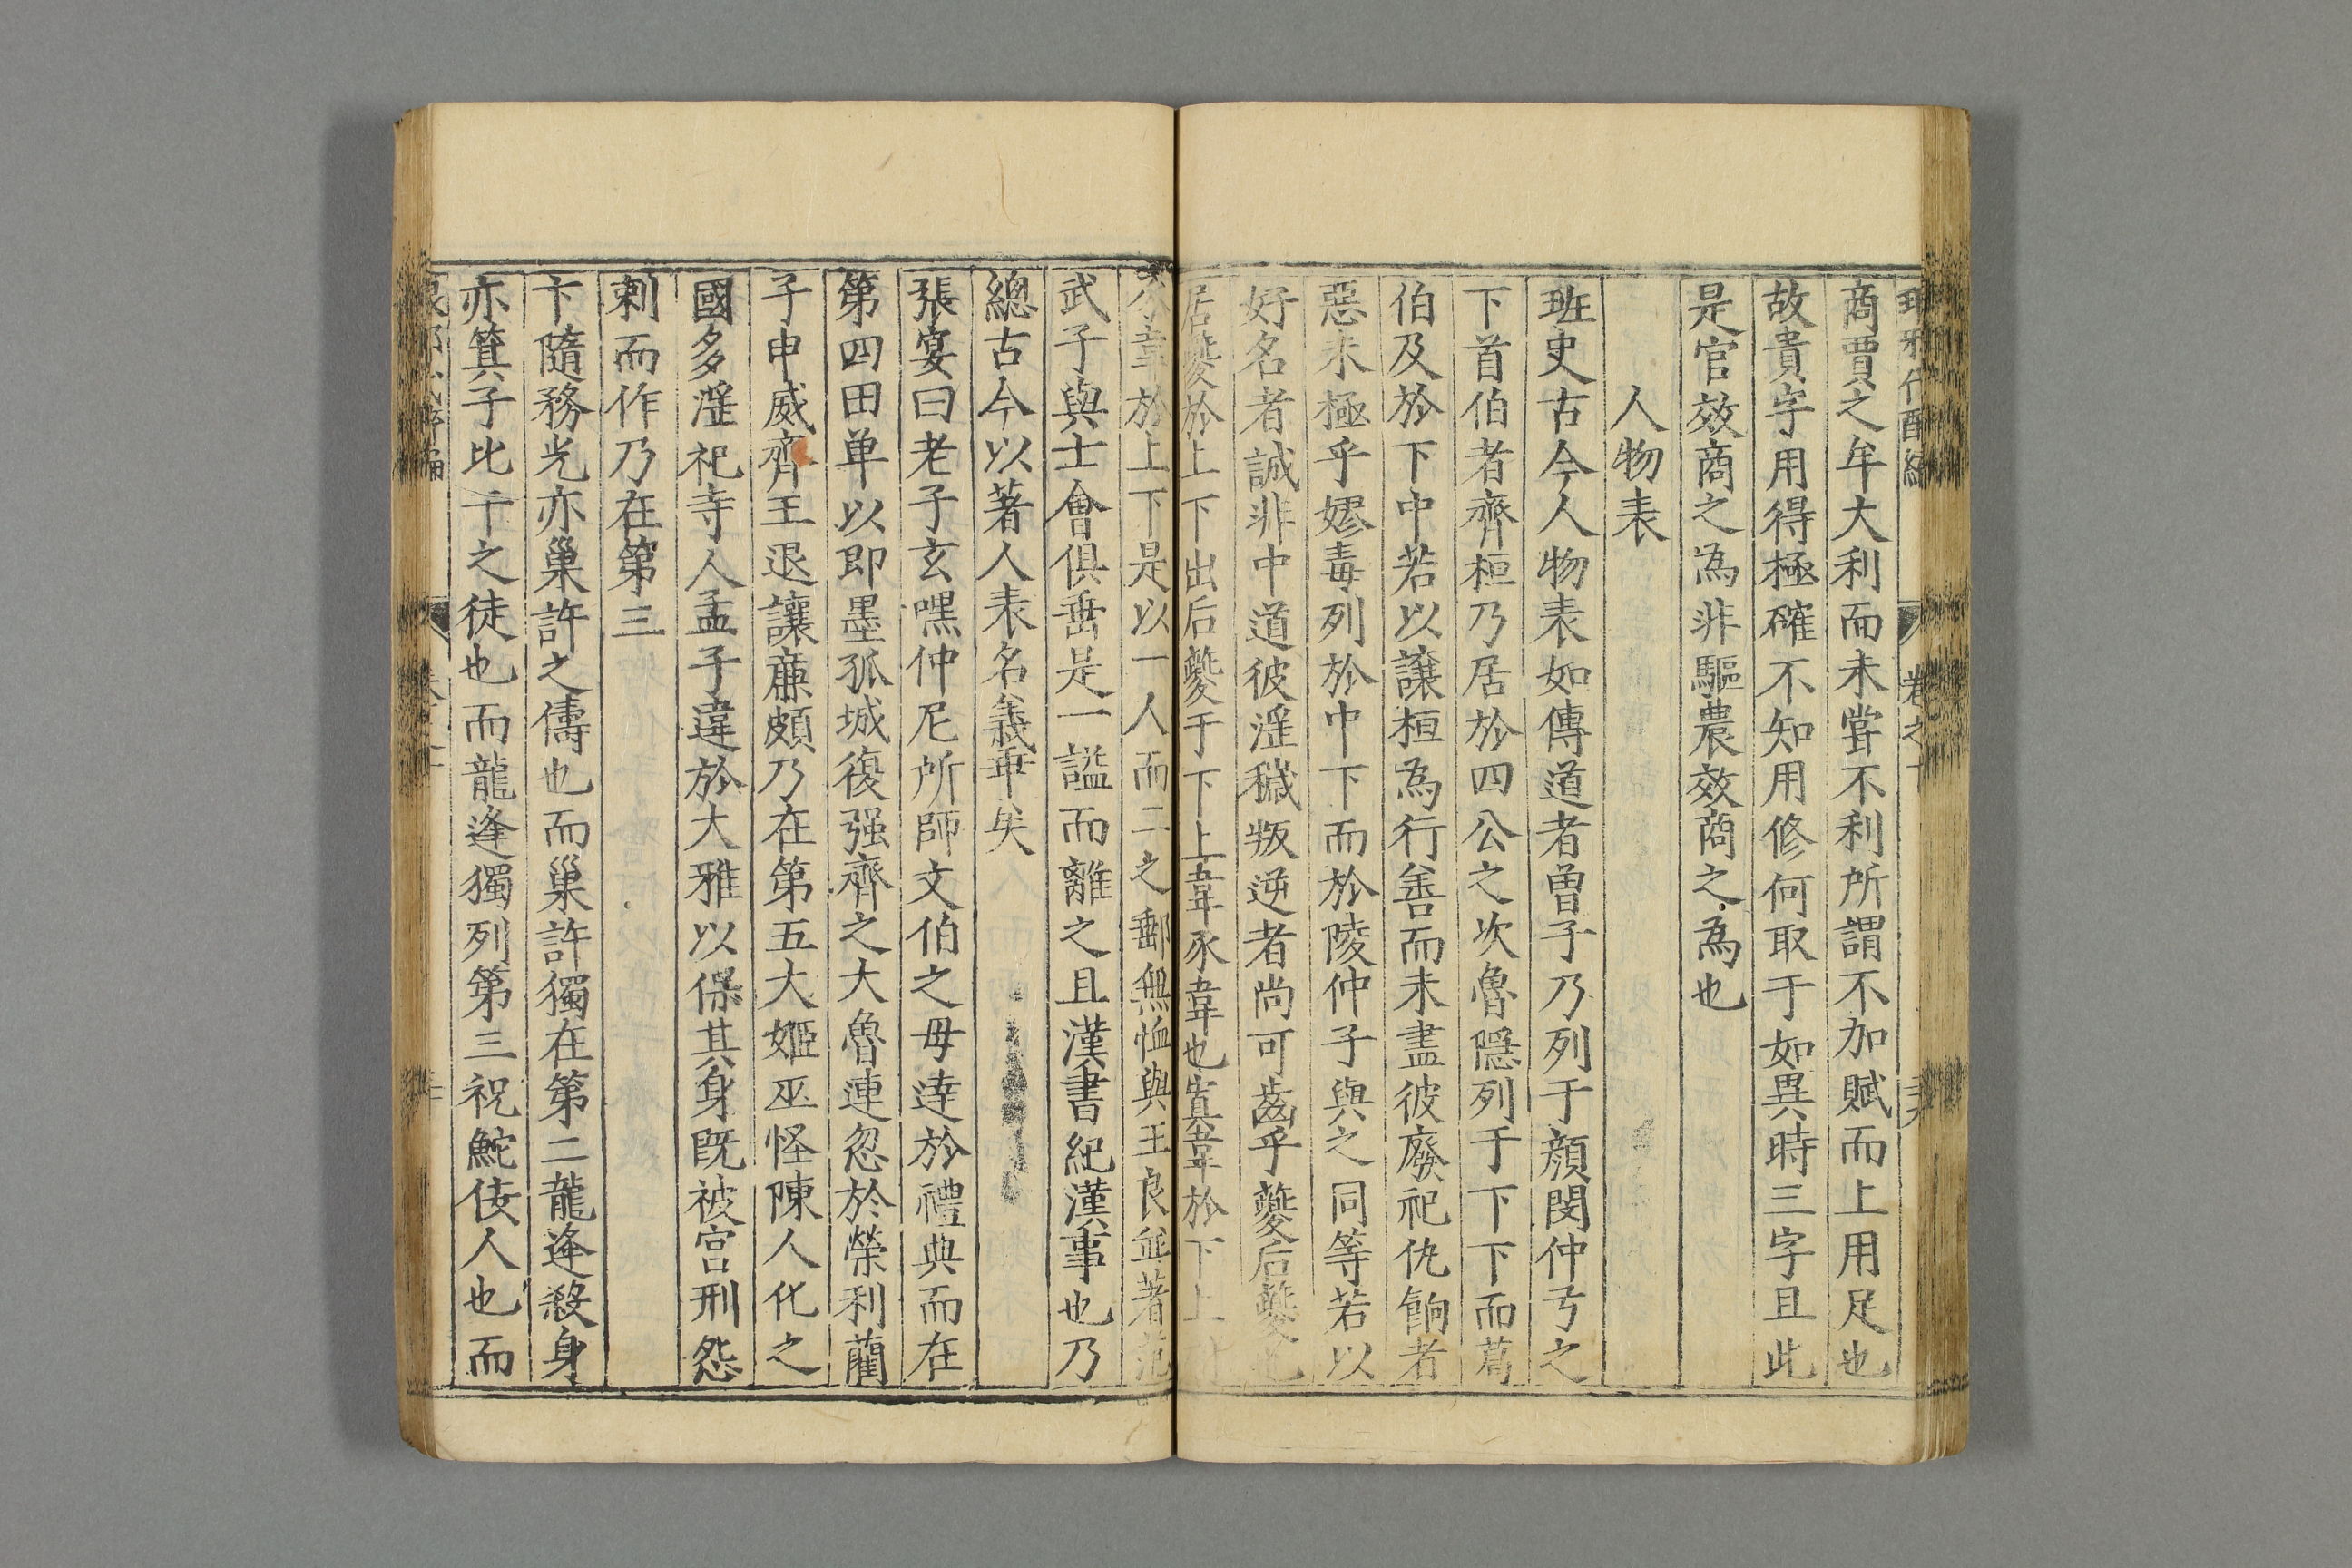 商賈之牟大利而未甞不利所謂不加賦而上用足也
故貴字用得極確不知用修何取于如異時三字且此
是官效商之為非驅農效商之為也
人物表
班史古今人物表如傳道者曽子乃列于顔閔仲弓之
下首伯者齊桓乃居於四公之次魯隠列于下下而葛
伯及於下中若以讓桓為行善而未盡彼廢祀仇餉者
惡未極乎嫪毒列於中下而於陵仲子與之同等若以
好名者誠非中道彼滛穢叛逆者尚可齒乎夔后夔也
居夔於上下出后夔于下上韋豕韋也寘韋於下上
豕韋於上下是以一人而二之郵無恤與王良並著范
武子與士會俱垂是一謚而離之且漢書紀漢事也乃
總古今以著人表名義乖矣
張宴曰老子玄嘿仲尼所師文伯之母逹於禮典而在
第四田单以即墨孤城復强齊之大魯連忽於榮利藺
子申威齊王退讓廉頗乃在第五大姬巫怪陳人化之
國多滛祀寺人孟子違於大雅以保其身既被宫刑怨
刺而作乃在第三
卞隨務光亦巢許之儔也而巢許獨在第二龍逢殺身
亦箕子比干之徒也而龍逢獨列第三祝鮀佞人也而